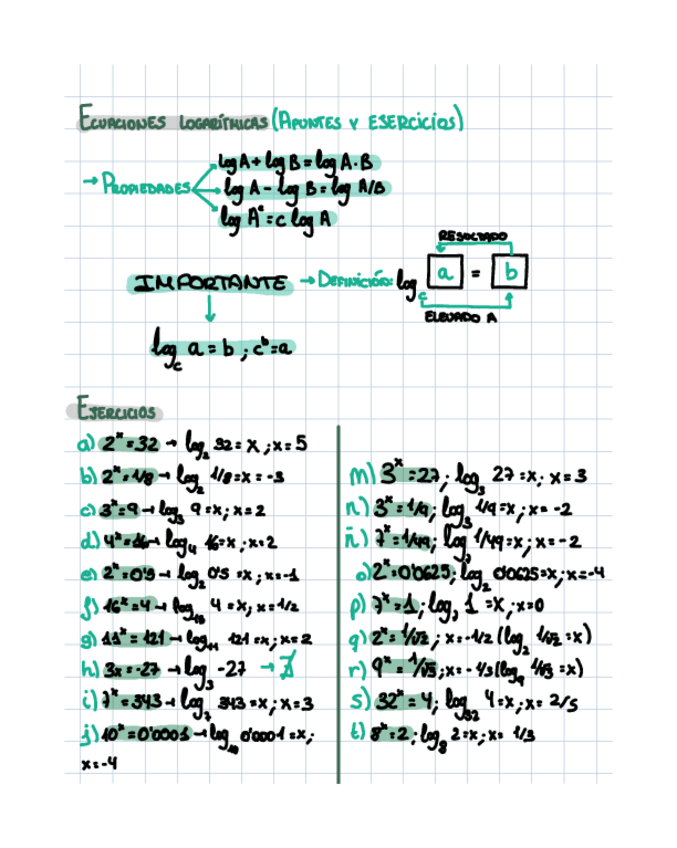 ECUACIONES LOGARÍTMICAS (APUNTES Y EJERCICIOS)
→ PROPIEDADES
log A + log B = log A·B
log A - log B = log A/B
log Aᶜ = c log A
RESULTADO
IMPORTANTE → DEFINICIÓN: log_c a = b
ELEVADO A
log_c a = b ; cᵇ = a
EJERCICIOS
a) 2ˣ = 32 → log₂ 32 = x ; x = 5
b) 2ˣ = 1/8 → log₂ 1/8 = x = -3
c) 3ˣ = 9 → log₃ 9 = x ; x = 2
d) 4ˣ = 16 → log₄ 16 = x ; x = 2
e) 2ˣ = 0'5 → log₂ 0'5 = x ; x = -1
f) 16ˣ = 4 → log₁₆ 4 = x ; x = 1/2
g) 11ˣ = 121 → log₁₁ 121 = x ; x = 2
h) 3x = -27 → log₃ -27 → ∄
i) 7ˣ = 343 → log₇ 343 = x ; x = 3
j) 10ˣ = 0'0001 → log₁₀ 0'0001 = x ;
x = -4
m) 3ˣ = 27 ; log₃ 27 = x ; x = 3
n) 3ˣ = 1/9 ; log₃ 1/9 = x ; x = -2
ñ) 7ˣ = 1/49 ; log₇ 1/49 = x ; x = -2
o) 2ˣ = 0'0625 ; log₂ 0'0625 = x ; x = -4
p) 7ˣ = 1 ; log₇ 1 = x ; x = 0
q) 2ˣ = 1/√2 ; x = -1/2 (log₂ 1/√2 = x)
r) 9ˣ = 1/√3 ; x = -1/3 (log₉ 1/√3 = x)
s) 32ˣ = 4 ; log₃₂ 4 = x ; x = 2/5
t) 8ˣ = 2 ; log₈ 2 = x ; x = 1/3